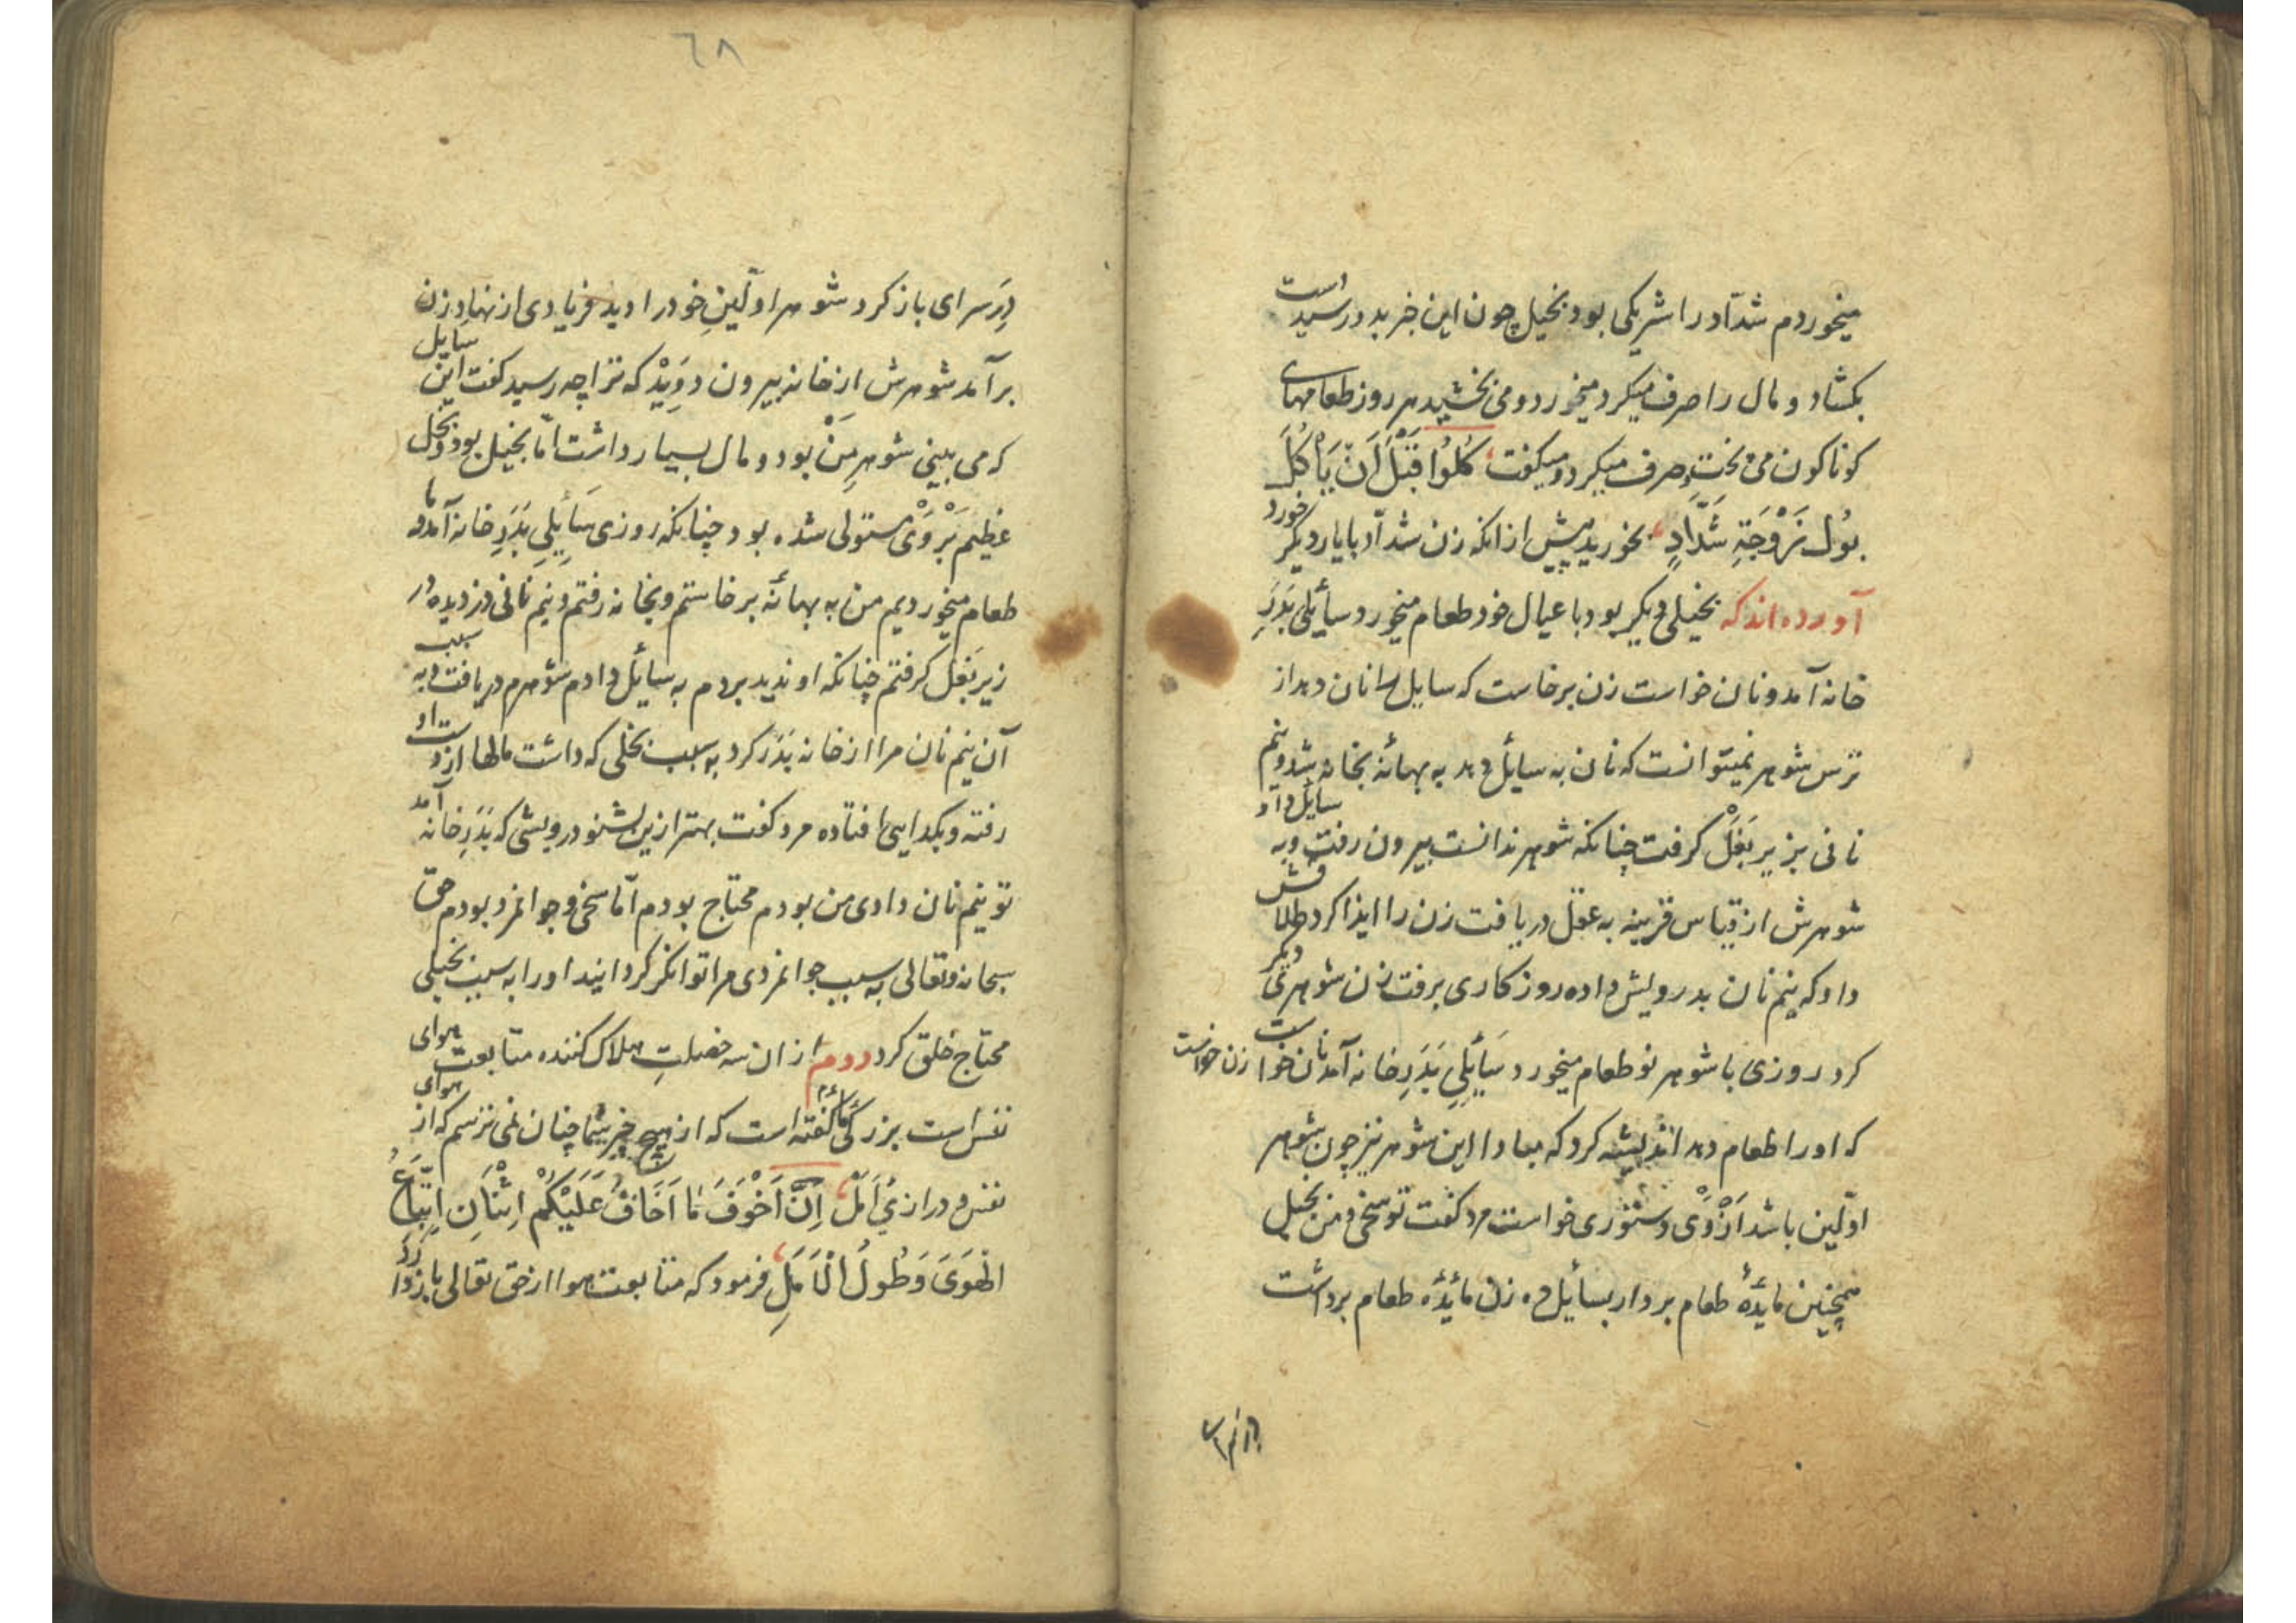 میخوردم شدّاد را شریکی بود بخیل چون این خبر بدو رسید دست
بکشاد و مال را صرف میکرد میخورد و می بخشید هر روز طعامهای
کوناکون می پخت و صرف میکرد و میکفت كُلُوا قَبْلَ اَنْ يَأْكُلَ
بُولُ زَوْجَةِ شَدَّادٍ بخورید پیش از انکه زن شدّاد با یار دیکر خورد
آورده اند که بخیلی دیکر بود با عیال خود طعام میخورد سأیلی بَدَرِ
خانه آمد و نان خواست زن برخاست که سایل را نان دهد از
ترس شوهر نمیتوانست که نان به سایل دهد به بهانهٔ بخانه شد و نیم
نانی بزیر بَغَلْ کرفت چنانکه شوهر ندانست بیرون رفت و به سایل داد
شوهرش از قیاس قرینه به عقل دریافت زن را ایذا کرد طلاقش
داد که نیم نان بدرویش داده روزکاری برفت زن شوهرئی دیکر
کرد روزی با شوهر نو طعام میخورد سَأیلِی بَدَرِ خانه آمد نان خواست زن خواست
که او را طعام دهد اندیشه کرد که مبادا این شوهر نیز چون شوهر
اوّلین باشد اَزْوَیْ دستوری خواست مرد کفت تو سخی و من بخیل
همچنین مایدهٔ طعام بردار بسأیل ده زن مایدهٔ طعام برداشت
٦٨
دَرِ سرای باز کرد شوهر اوّلینِ خود را دید فریادی از نهاد زن
برآمد شوهرش از خانه بیرون دوَیِدْ که ترا چه رسید کفت این سایل
که می بینی شوهرِ مَنْ بود و مال بسیار داشت امّا بخیل بود و بخل
عظیم بَرْوَیْ مستولی شده بود چنانکه روزی سَأیلِی بَدَرِ خانه آمد و ما
طعام میخوردیم من به بهانهٔ برخاستم و بخانه رفتم و نیم نانی دزدیده در
زیر بَغَل کرفتم چنانکه او ندید بردم به سایل دادم شوهرم دریافت و به سبب
آن نیم نان مرا از خانه بَدَر کرد به سبب بخلی که داشت مالها از دست او
رفته و بکدایی افتاده مرد کفت بهتر ازین بشنو درویشی که بَدَرِ خانه آمد
تو نیم نان دادی من بودم محتاج بودم امّا سخی و جوانمرد بودم حق
سبحانه و تعالی به سبب جوانمردی مرا توانکر کردانید او را به سبب بخیلی
محتاج خلق کرد دوم از ان سه خصلتِ هلاک کننده متابعت هوای
نفس است بزرکی کفته است که از هیچ چیز بشما چنان نمی ترسم که از هوای
نفس و درازیِ اَمَلْ اِنَّ اَخْوَفَ مَا اَخَافُ عَلَيْكُمْ اِثْنَانِ اِتِّبَاعُ
الْهَوَى وَطُولُ الْاَمَلِ فرمود که متابعت هوا از حق تعالی باز دارد